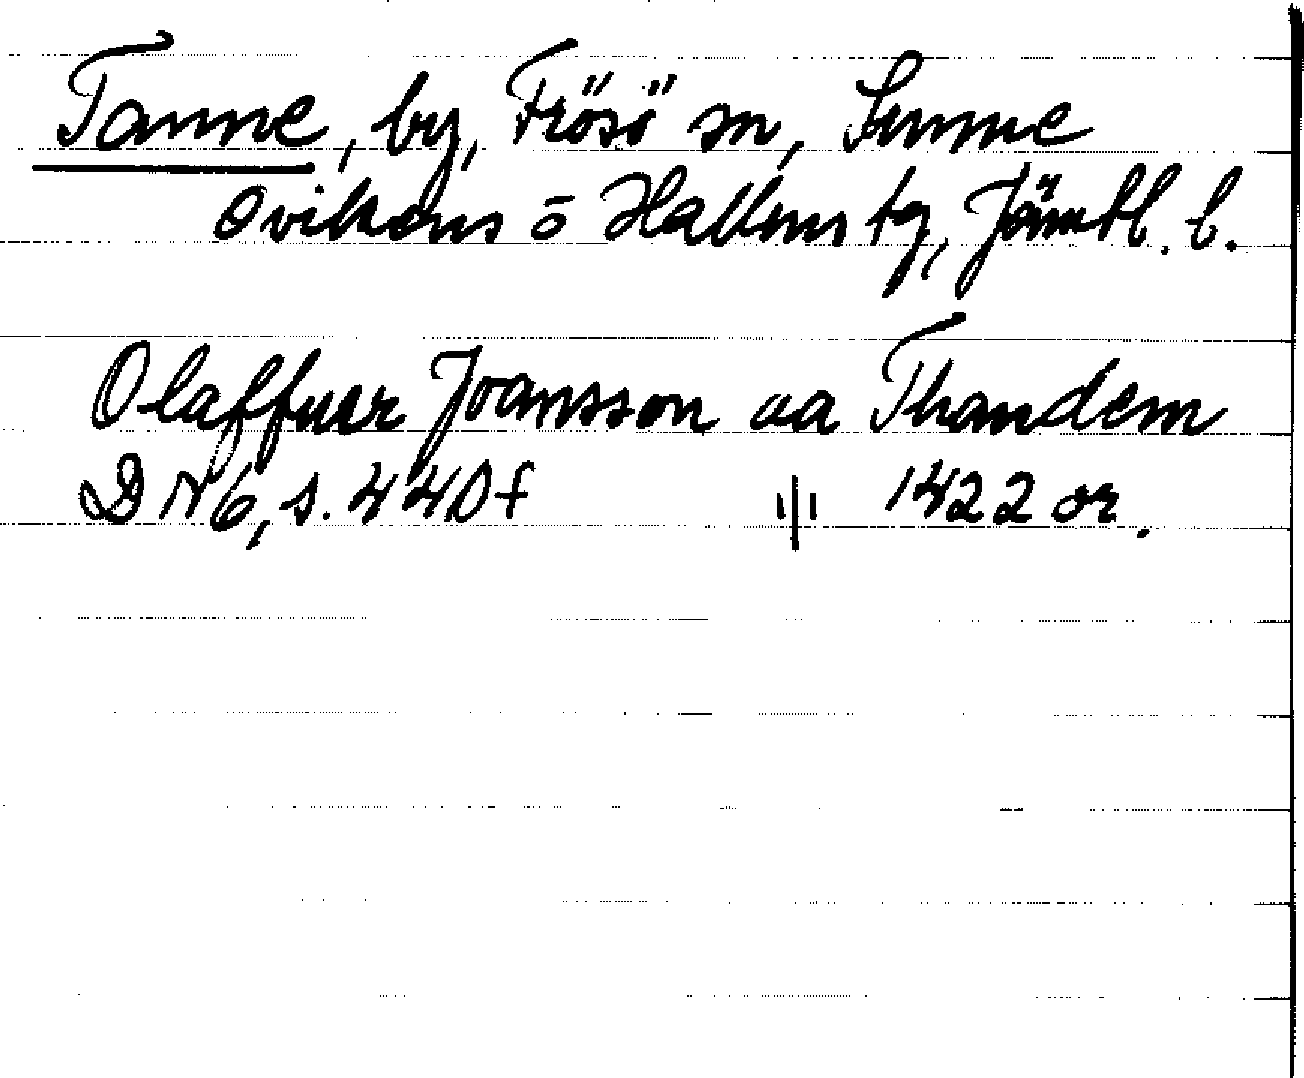 Tanne, by, Frösö sn, Sunne
Ovikens o Hallens tg, Jämtl. l.
Olaffuer Joansson aa Thandem
DN 6, s. 440 f 1422 or.